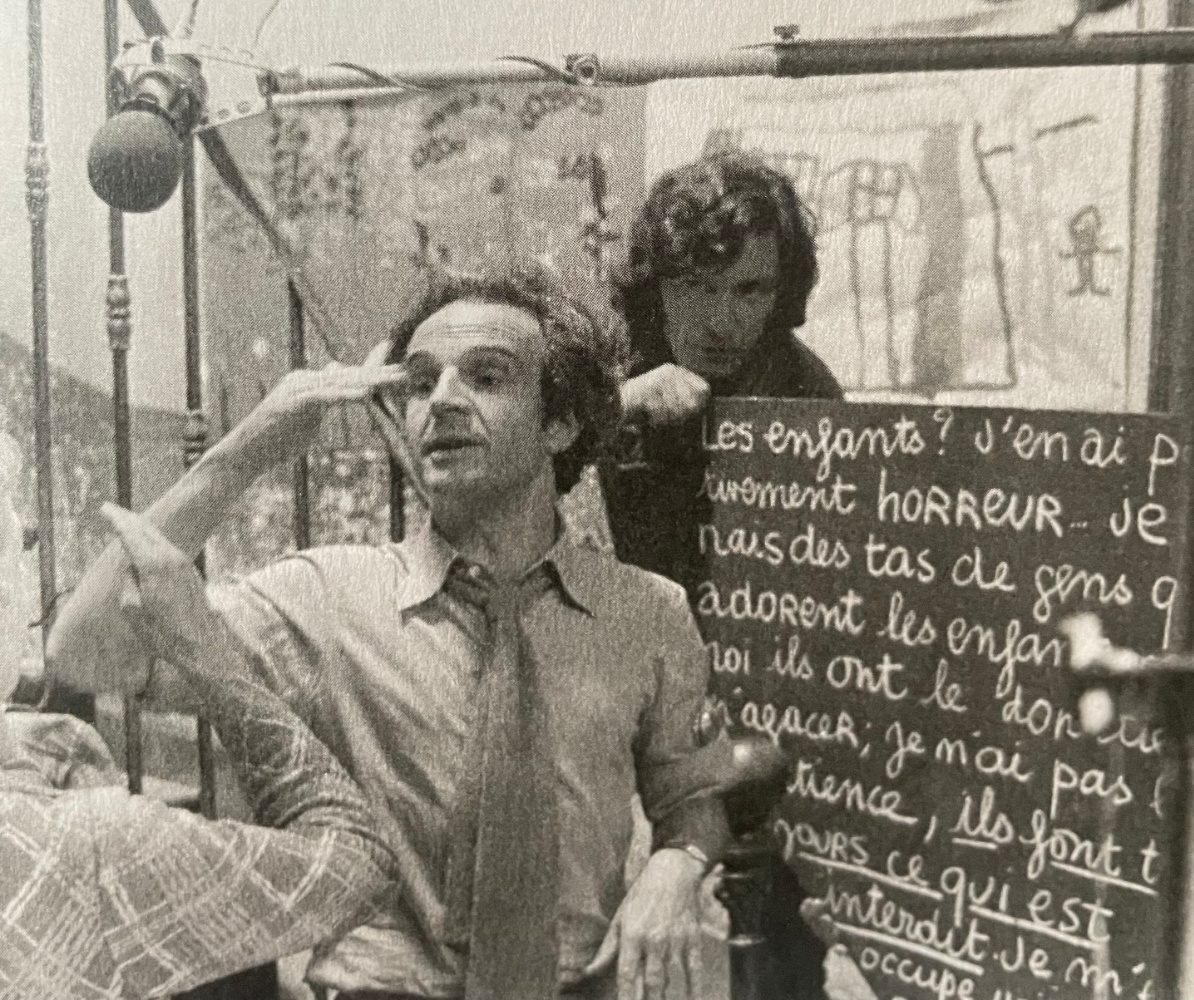 Les enfants? J'en ai p
tivement HORREUR... je
nais des tas de gens q
adorent les enfan
moi ils ont le don
m'agacer; je n'ai pas
tience, ils font t
jours ce qui est
interdit. Je m'
occupe